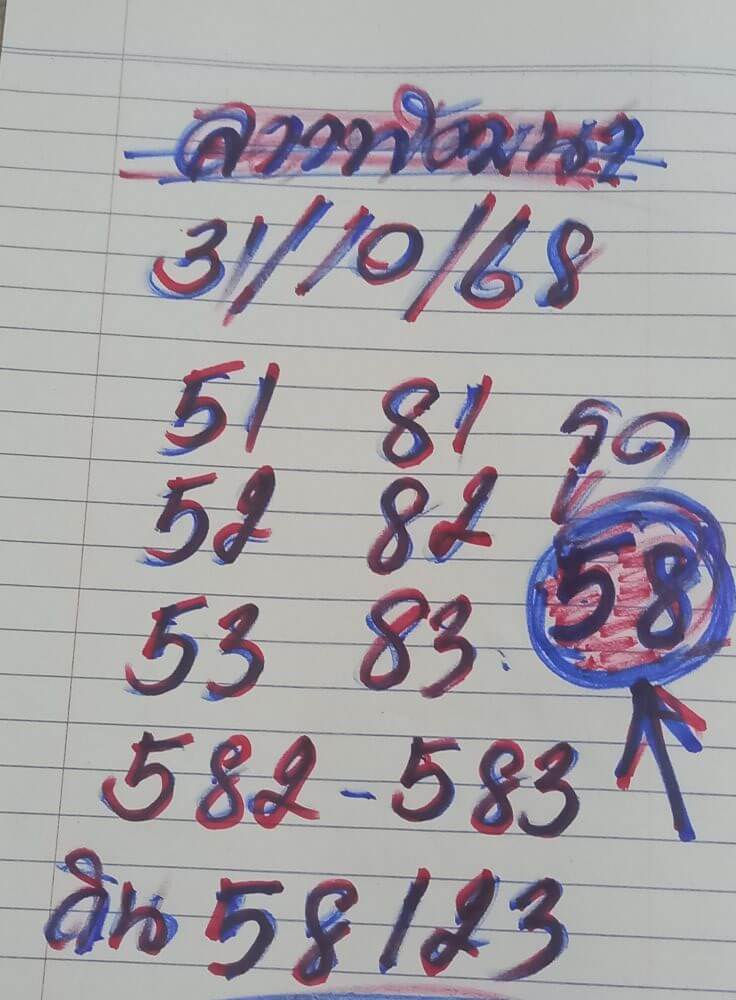 ลาวพัฒนา
31/10/68
51 81 รูด
52 82 58
53 83
582-583
วิน 58123